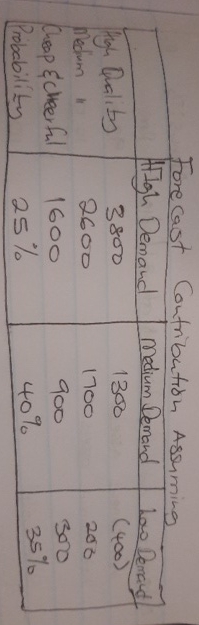 Forecast Contribution Assuming
High Demand Medium Demand Low Demand
High Quality 3800 1300 (400)
Medium " 2600 1700 200
Cheap & Cheerful 1600 900 300
Probability 25% 40% 35%